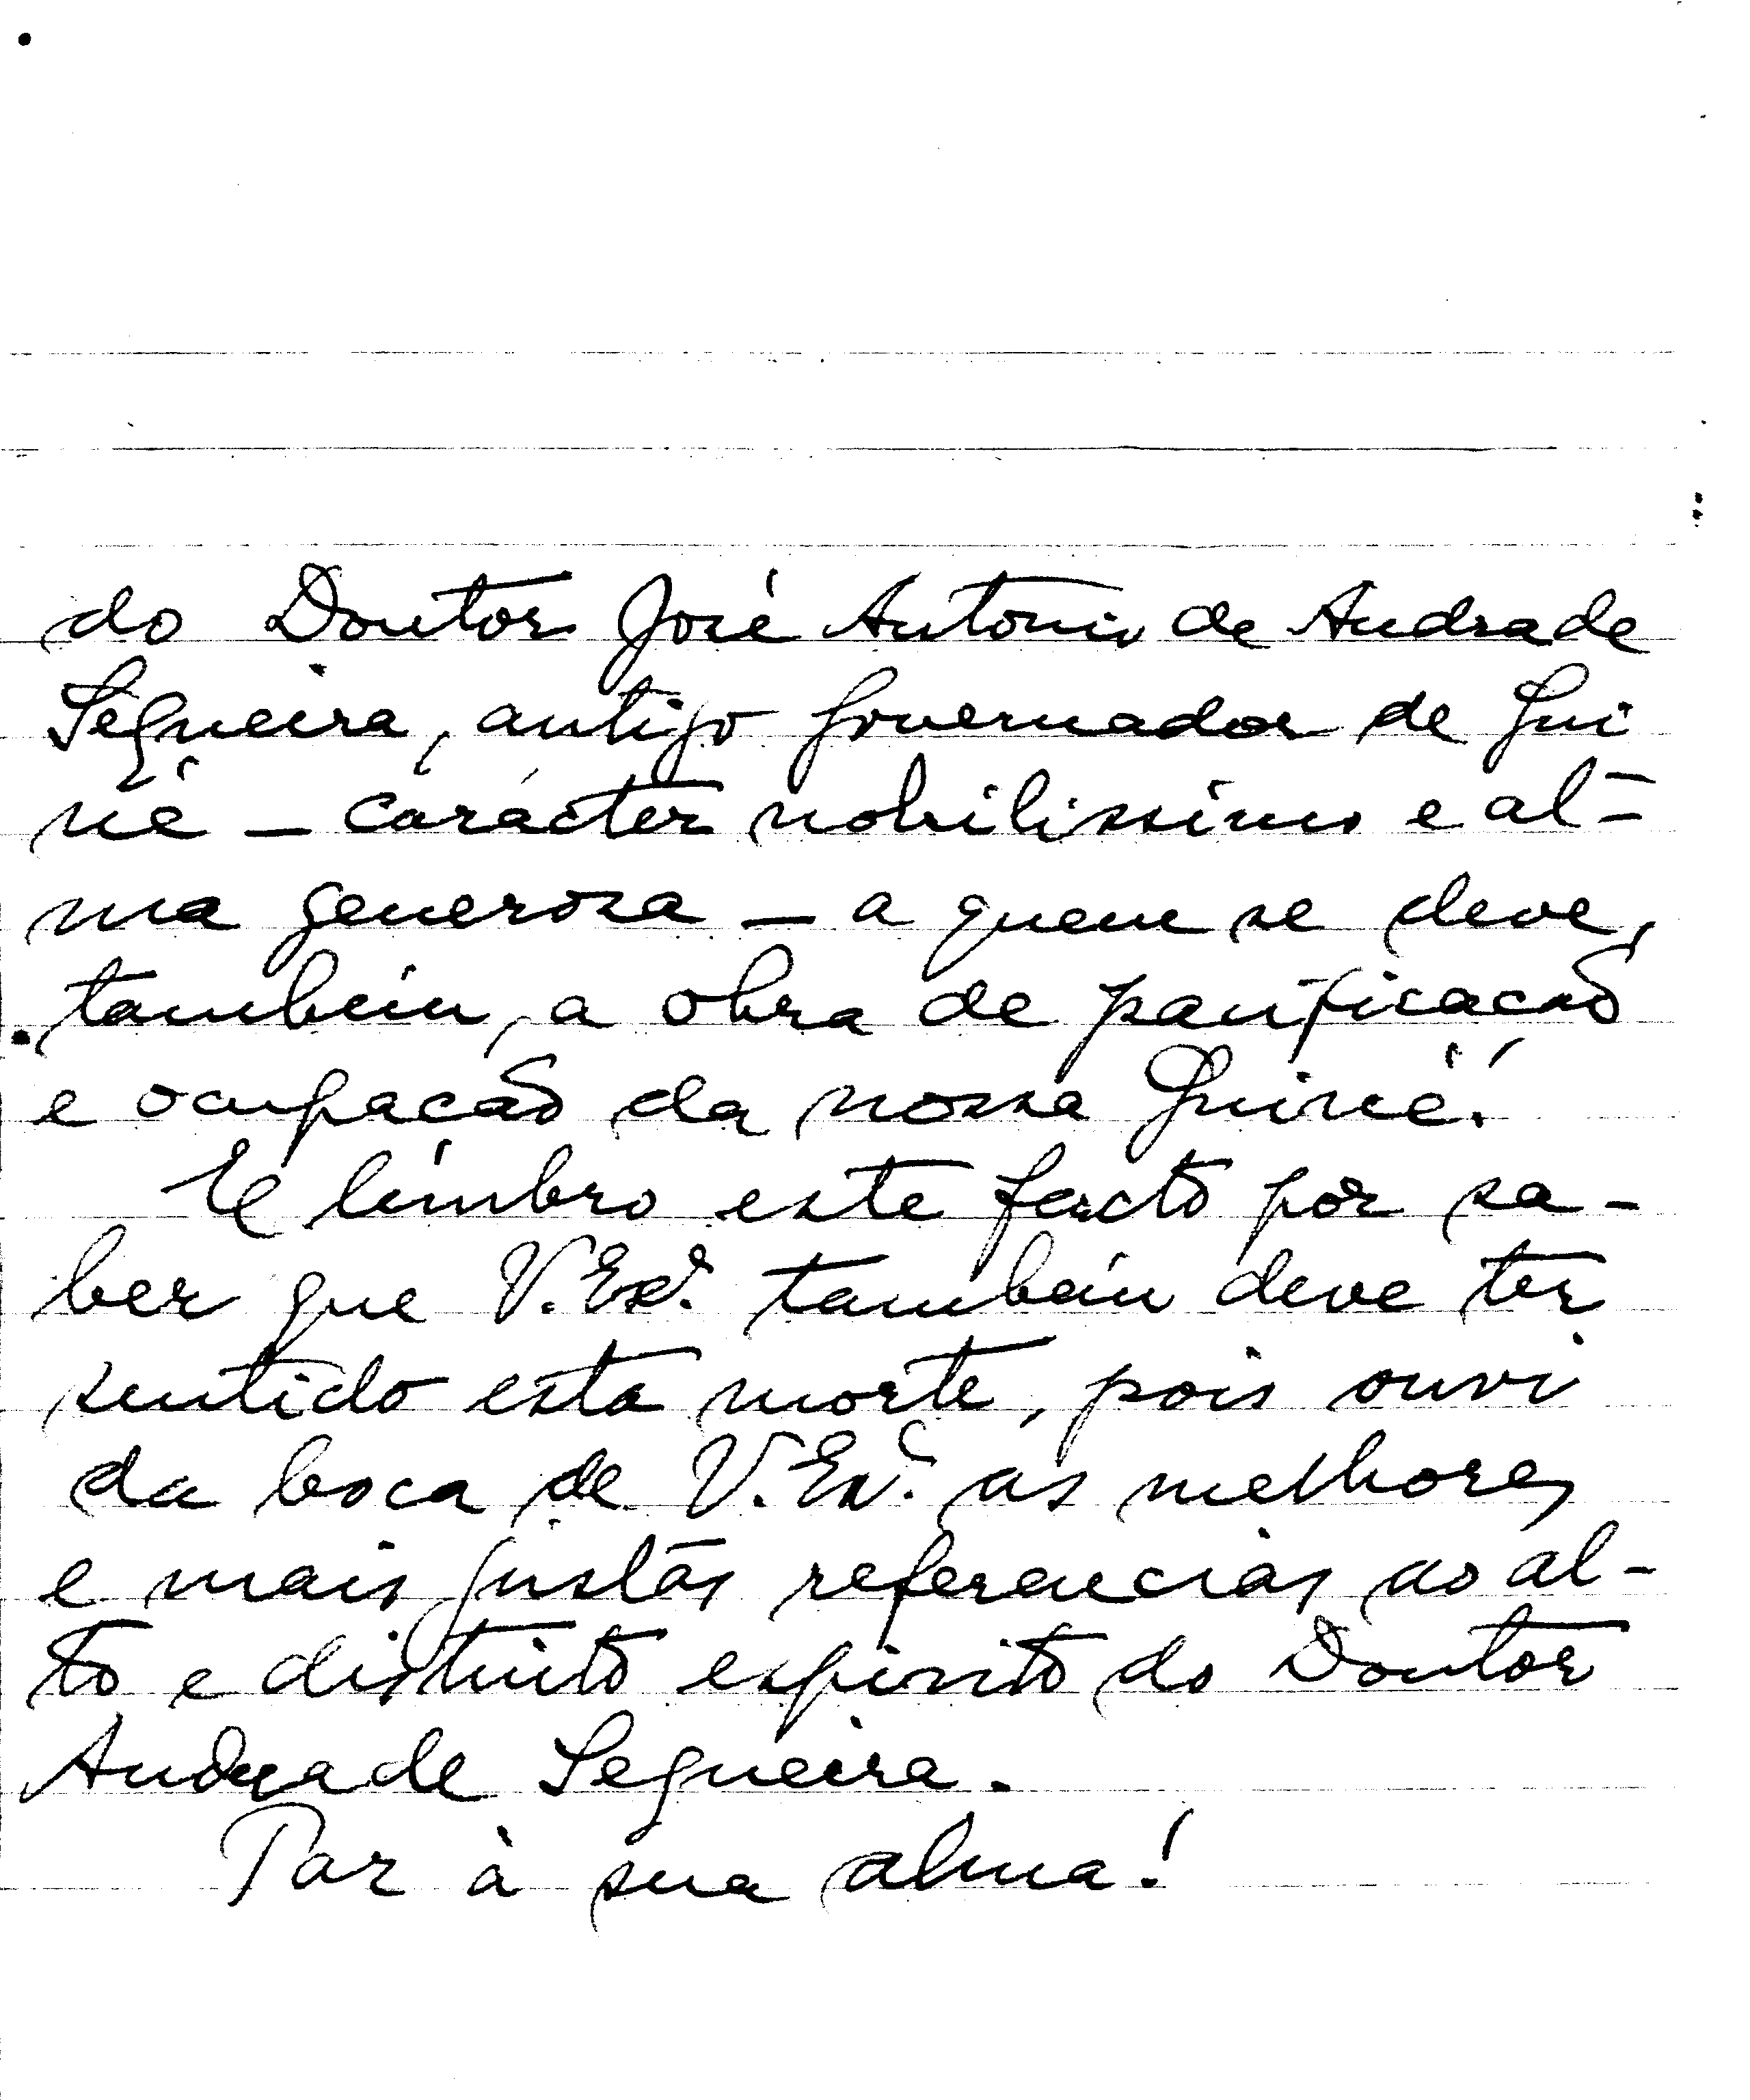 do Doutor José Antonio de Andrade
Sequeira, antigo Governador de Gui
né – carácter nobilissimo e al-
ma generosa – a quem se deve,
também, a obra de pacificacão
e ocupacão da nossa Guiné!
E lémbro este facto por sa-
ber que V. Exª. também deve ter
sentido esta morte, pois ouvi
da boca de V. Exª. as melhores
e mais justas referencias ao al-
to e distinto espirito do Doutor
Andrade Sequeira.
Paz à sua alma!